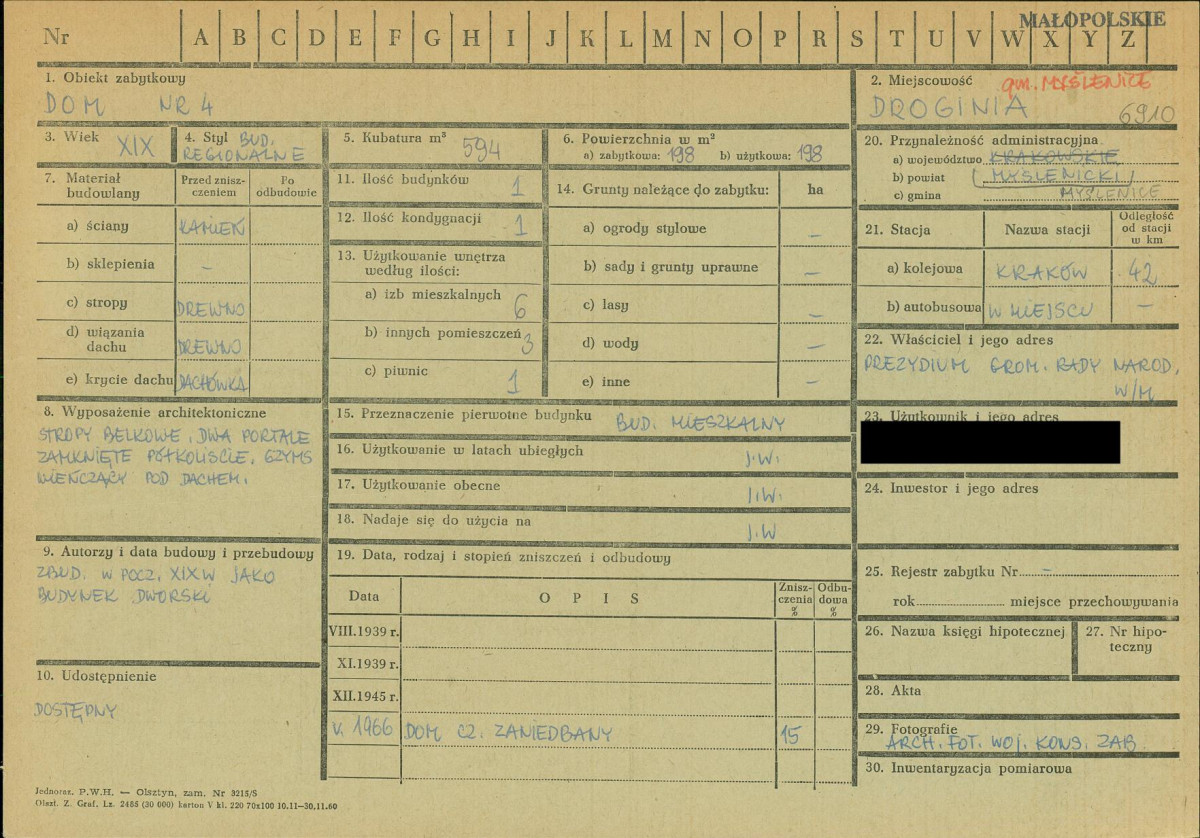 MAŁOPOLSKIE
Nr A B C D E F G H I J K L M N O P R S T U V W X Y Z
1. Obiekt zabytkowy
DOM NR 4
2. Miejscowość gm. MYŚLENICE
DROGINIA 6910
3. Wiek XIX
4. Styl BUD.
REGIONALNE
5. Kubatura m³ 594
6. Powierzchnia w m²
a) zabytkowa: 198 b) użytkowa: 198
7. Materiał budowlany
Przed zniszczeniem
Po odbudowie
a) ściany KAMIEŃ
b) sklepienia –
c) stropy DREWNO
d) wiązania dachu DREWNO
e) krycie dachu DACHÓWKA
8. Wyposażenie architektoniczne
STROPY BELKOWE, DWA PORTALE
ZAMKNIĘTE PÓŁKOLIŚCIE, GZYMS
WIEŃCZĄCY POD DACHEM.
9. Autorzy i data budowy i przebudowy
ZBUD. W POCZ. XIX W JAKO
BUDYNEK DWORSKI
10. Udostępnienie
DOSTĘPNY
11. Ilość budynków 1
12. Ilość kondygnacji 1
13. Użytkowanie wnętrza
według ilości:
a) izb mieszkalnych 6
b) innych pomieszczeń 3
c) piwnic 1
14. Grunty należące do zabytku: ha
a) ogrody stylowe –
b) sady i grunty uprawne –
c) lasy –
d) wody –
e) inne –
15. Przeznaczenie pierwotne budynku BUD. MIESZKALNY
16. Użytkowanie w latach ubiegłych J.W.
17. Użytkowanie obecne J.W.
18. Nadaje się do użycia na J.W
19. Data, rodzaj i stopień zniszczeń i odbudowy
Data OPIS Zniszczenia % Odbudowa %
VIII.1939 r.
XI.1939 r.
XII.1945 r.
V. 1966 DOM CZ. ZANIEDBANY 15
20. Przynależność administracyjna
a) województwo KRAKOWSKIE
b) powiat (MYŚLENICKI)
c) gmina MYŚLENICE
21. Stacja Nazwa stacji Odległość od stacji w km
a) kolejowa KRAKÓW 42
b) autobusowa W MIEJSCU –
22. Właściciel i jego adres
PREZYDIUM GROM. RADY NAROD.
W/M
23. Użytkownik i jego adres
24. Inwestor i jego adres
25. Rejestr zabytku Nr –
rok miejsce przechowywania
26. Nazwa księgi hipotecznej
27. Nr hipoteczny
28. Akta
29. Fotografie
ARCH. FOT. WOJ. KONS. ZAB.
30. Inwentaryzacja pomiarowa
Jednoraz. P.W.H. — Olsztyn, zam. Nr 3215/S
Olszt. Z. Graf. Lz. 2485 (30 000) karton V kl. 220 70x100 10.11—30.11.60